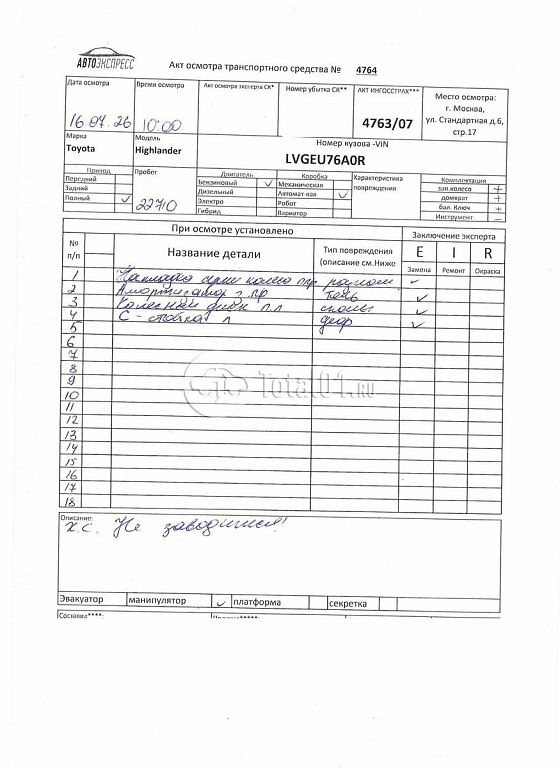 АВТОЭКСПРЕСС
Акт осмотра транспортного средства № 4764
Дата осмотра Время осмотра Акт осмотра эксперта СК* Номер убытка СК** АКТ ИНГОССТРАХ*** Место осмотра:
г. Москва,
ул. Стандартная д.6,
стр.17
16.07.26 10:00 4763/07
Марка Модель Номер кузова -VIN
Toyota Highlander LVGEU76A0R
Привод Пробег Двигатель Коробка Характеристика повреждения Комплектация
Передний Бензиновый ✓ Механическая зап.колесо +
Задний Дизельный Автомат-кая ✓ домкрат +
Полный ✓ 22710 Электро Робот бал. Ключ +
Гибрид Вариатор Инструмент –
При осмотре установлено Заключение эксперта
№ п/п Название детали Тип повреждения (описание см.Ниже E I R
Замена Ремонт Окраска
1 Накладка арки колеса ппр ✓
2 Амортизатор п.пр течь ✓
3 Колесный диск п.л сколы ✓
4 С - стойка л деф ✓
5
6
7
8
9
10
11
12
13
14
15
16
17
18
Total01.RU
Описание:
х.с. Не заводится!
Эвакуатор манипулятор ✓ платформа секретка
Составил****: